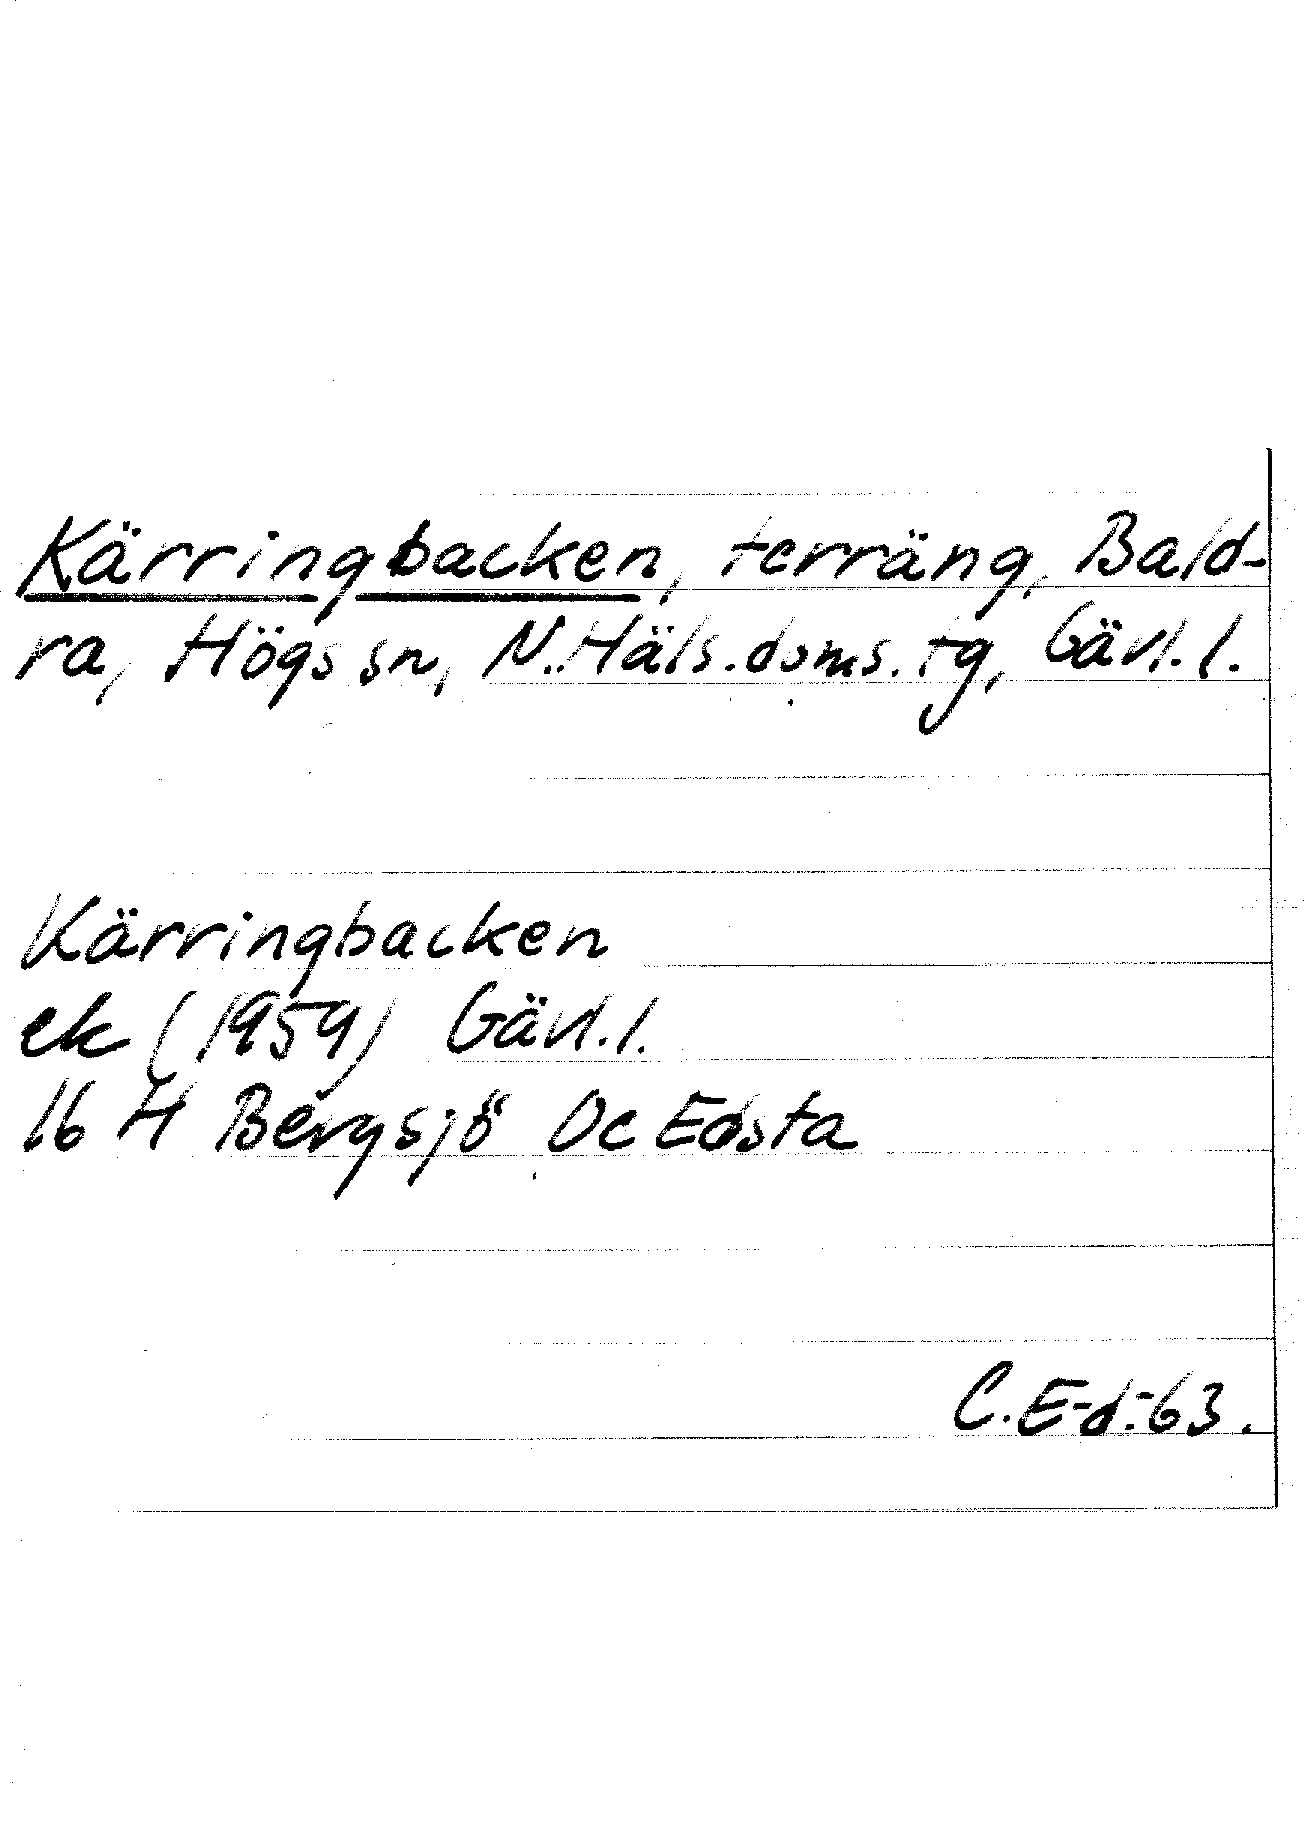 Kärringbacken, terräng, Bald-
ra, Högs sn, N. Häls. doms. tg, Gävl. l.
Kärringbacken
ek (1959) Gävl. l.
16 H Bergsjö Oc Edsta
C. E-d.-63.